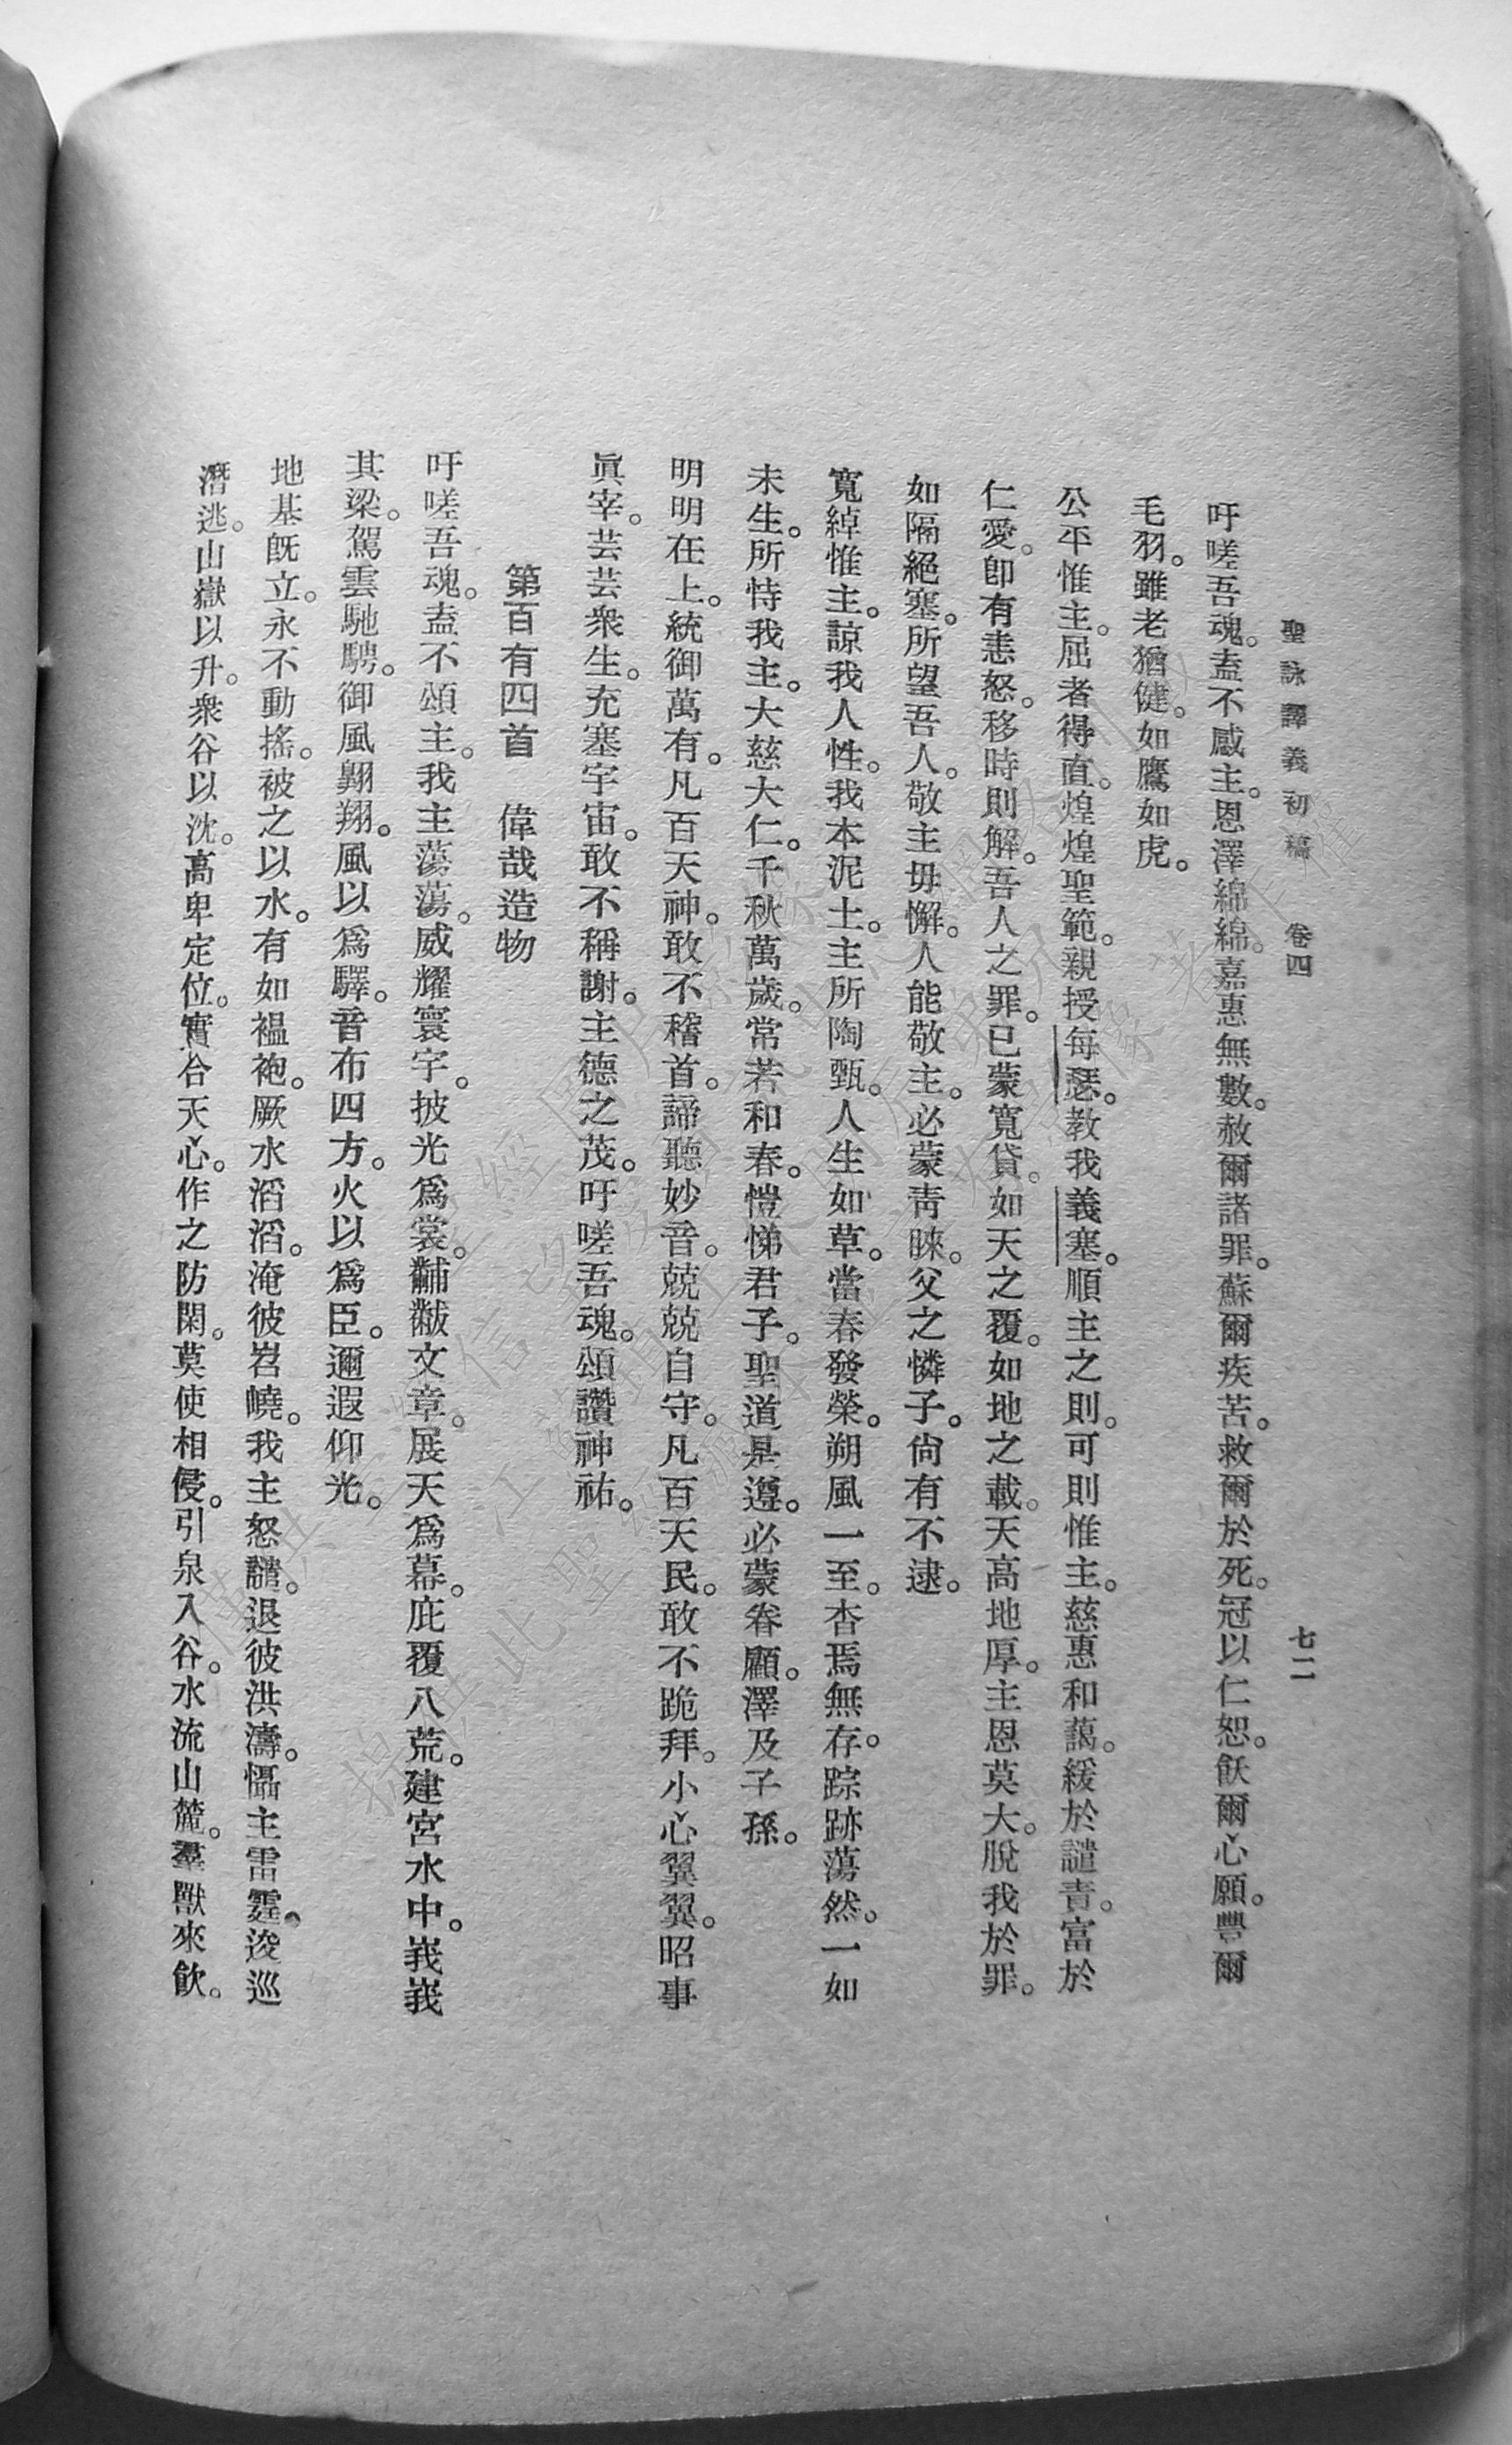 聖詠譯義初稿　卷四　七二
吁嗟吾魂。盍不感主。恩澤綿綿。嘉惠無數。赦爾諸罪。蘇爾疾苦。救爾於死。冠以仁恕。飫爾心願。豐爾
毛羽。雖老猶健。如鷹如虎。
公平惟主。屈者得直。煌煌聖範。親授每瑟。教我義塞。順主之則。可則惟主。慈惠和藹。緩於譴責。富於
仁愛。卽有恚怒。移時則解。吾人之罪。已蒙寬貸。如天之覆。如地之載。天高地厚。主恩莫大。脫我於罪。
如隔絕塞。所望吾人。敬主毋懈。人能敬主。必蒙靑睞。父之憐子。尙有不逮。
寬綽惟主。諒我人性。我本泥土。主所陶甄。人生如草。當春發榮。朔風一至。杳焉無存。踪跡蕩然。一如
未生。所恃我主。大慈大仁。千秋萬歲。常若和春。愷悌君子。聖道是遵。必蒙眷顧。澤及子孫。
明明在上。統御萬有。凡百天神。敢不稽首。諦聽妙音。兢兢自守。凡百天民。敢不跪拜。小心翼翼。昭事
眞宰。芸芸衆生。充塞宇宙。敢不稱謝。主德之茂。吁嗟吾魂。頌讚神祐。
第百有四首　偉哉造物
吁嗟吾魂。盍不頌主。我主蕩蕩。威耀寰宇。披光爲裳。黼黻文章。展天爲幕。庇覆八荒。建宮水中。峩峩
其梁。駕雲馳騁。御風翺翔。風以爲驛。音布四方。火以爲臣。邇遐仰光。
地基旣立。永不動搖。被之以水。有如褞袍。厥水滔滔。淹彼岧嶢。我主怒譴。退彼洪濤。懾主雷霆。逡巡
潛逃。山嶽以升。衆谷以沈。高卑定位。實合天心。作之防閑。莫使相侵。引泉入谷。水流山麓。羣獸來飮。